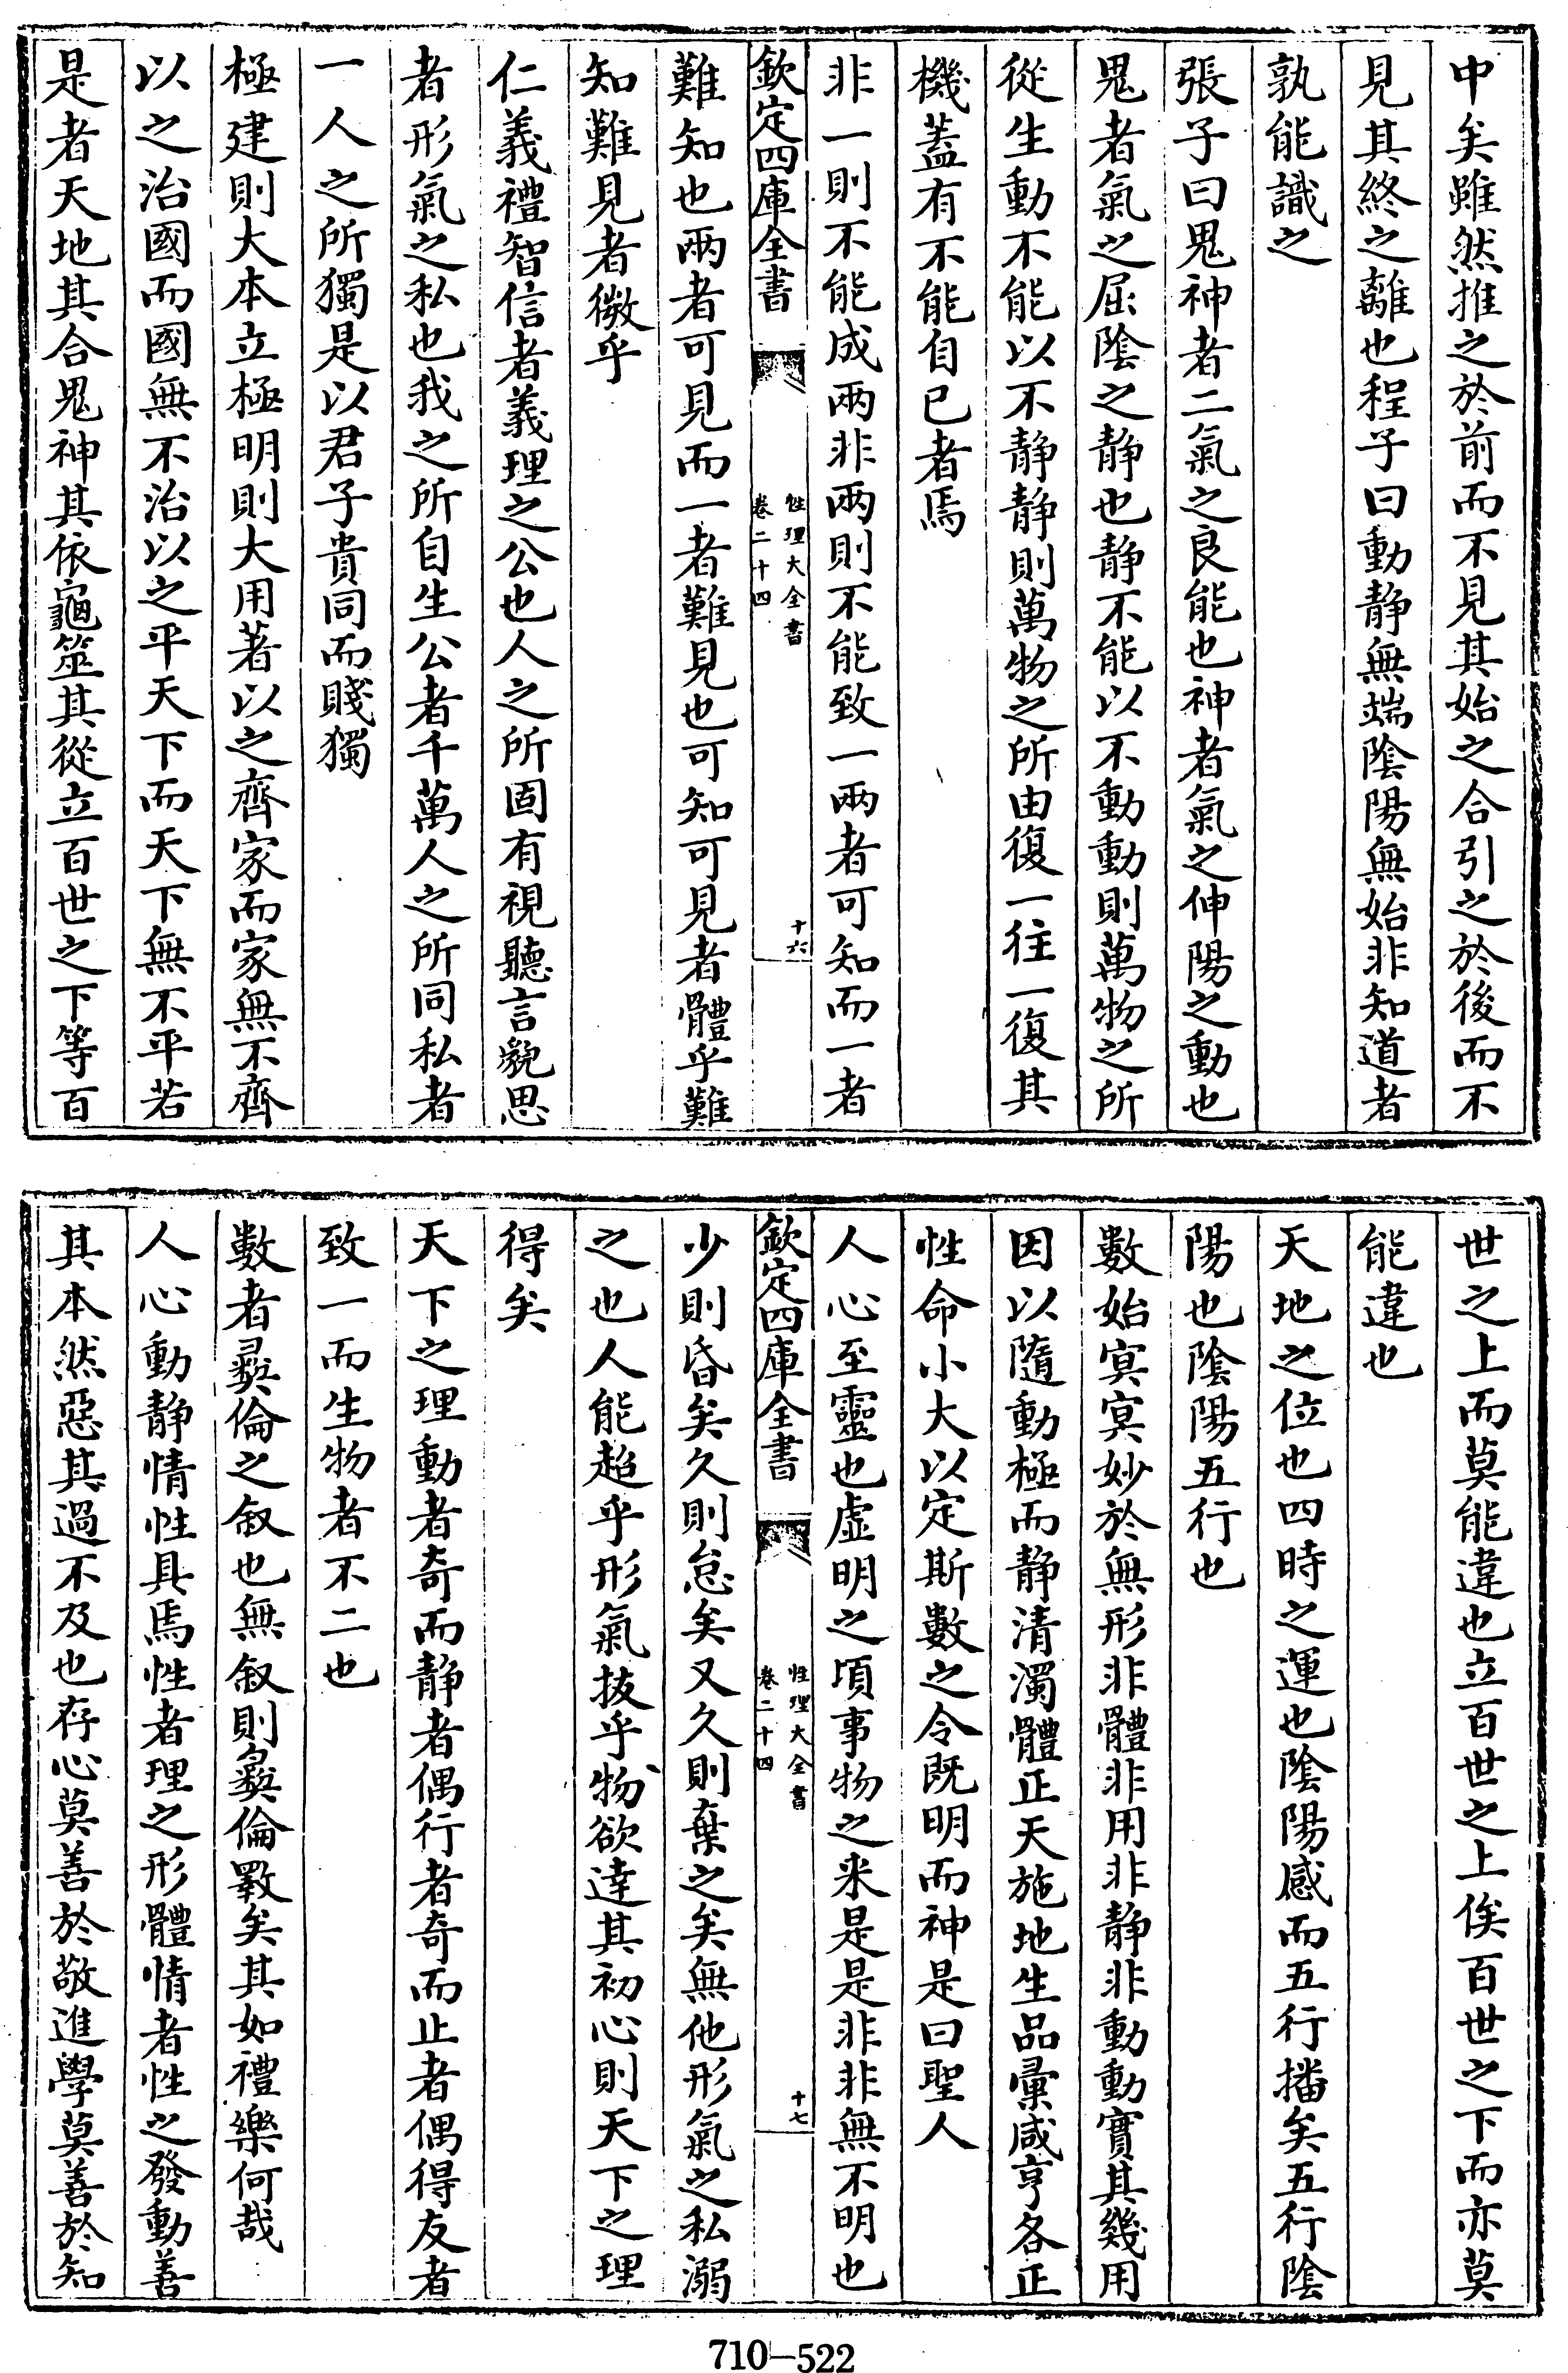 中矣雖然推之於前而不見其始之合引之於後而不
見其終之離也程子曰動静無端陰陽無始非知道者
孰能識之
張子曰鬼神者二氣之良能也神者氣之伸陽之動也
鬼者氣之屈陰之静也静不能以不動動則萬物之所
從生動不能以不静静則萬物之所由復一往一復其
機蓋有不能自已者焉
非一則不能成兩非兩則不能致一兩者可知而一者
欽定四庫全書
性理大全書
卷二十四
十六
難知也兩者可見而一者難見也可知可見者體乎難
知難見者微乎
仁義禮智信者義理之公也人之所固有視聽言貌思
者形氣之私也我之所自生公者千萬人之所同私者
一人之所獨是以君子貴同而賤獨
極建則大本立極明則大用著以之齊家而家無不齊
以之治國而國無不治以之平天下而天下無不平若
是者天地其合鬼神其依龜筮其從立百世之下等百
世之上而莫能違也立百世之上俟百世之下而亦莫
能違也
天地之位也四時之運也陰陽感而五行播矣五行陰
陽也陰陽五行也
數始冥冥妙於無形非體非用非静非動動實其幾用
因以隨動極而静清濁體正天施地生品彙咸亨各正
性命小大以定斯數之令既明而神是曰聖人
人心至靈也虚明之頃事物之来是是非非無不明也
欽定四庫全書
性理大全書
卷二十四
十七
少則昏矣久則怠矣又久則棄之矣無他形氣之私溺
之也人能超乎形氣拔乎物欲達其初心則天下之理
得矣
天下之理動者奇而静者偶行者奇而止者偶得友者
致一而生物者不二也
數者彛倫之叙也無叙則彛倫斁矣其如禮樂何哉
人心動静情性具焉性者理之形體情者性之發動善
其本然惡其過不及也存心莫善於敬進學莫善於知
710-522